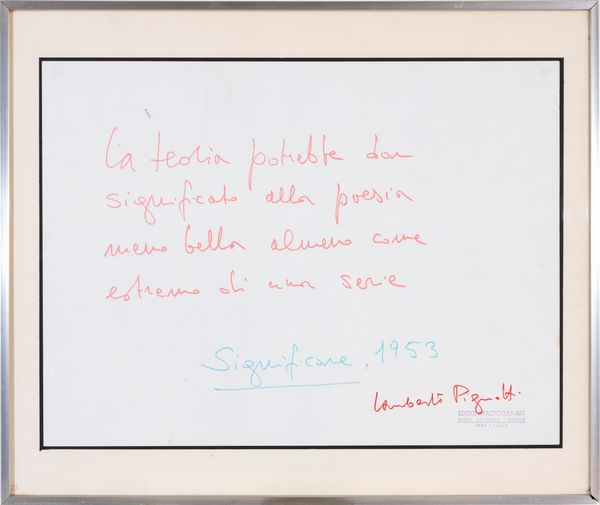 La teoria potrebbe dar
significato alla poesia
meno bella almeno come
estremo di una serie
Significare, 1953
Lamberto Pignotti
EDIZIONI FACTOTUM-ART